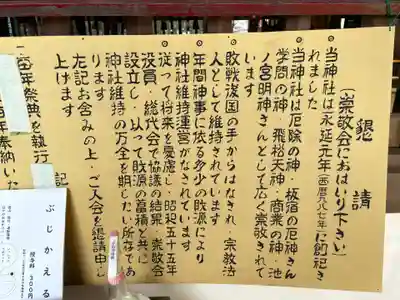 懇請
(崇敬会におはいり下さい)
当神社は永延元年(西暦九八七年)に創祀さ
れました
当神社は厄除の神・板宿の厄神さん
学問の神・飛松天神・商業の神・池
ノ宮明神さんとして広く崇敬されて
います
敗戦後国の手からはなされ、宗教法
人として維持されています
年間神事に依る多少の財源により
神社維持運営がなされています
従って将来を憂慮し、昭和五十五年
役員・総代会で協議の結果、崇敬会
を設立し、以って財源の蓄積と共に
神社維持の万全を期したい所存であ
ります
左記お含みの上、ご入会を懇請申し
上げます
記
一、毎年祭典を執行
ぶじかえる
授与料 300円